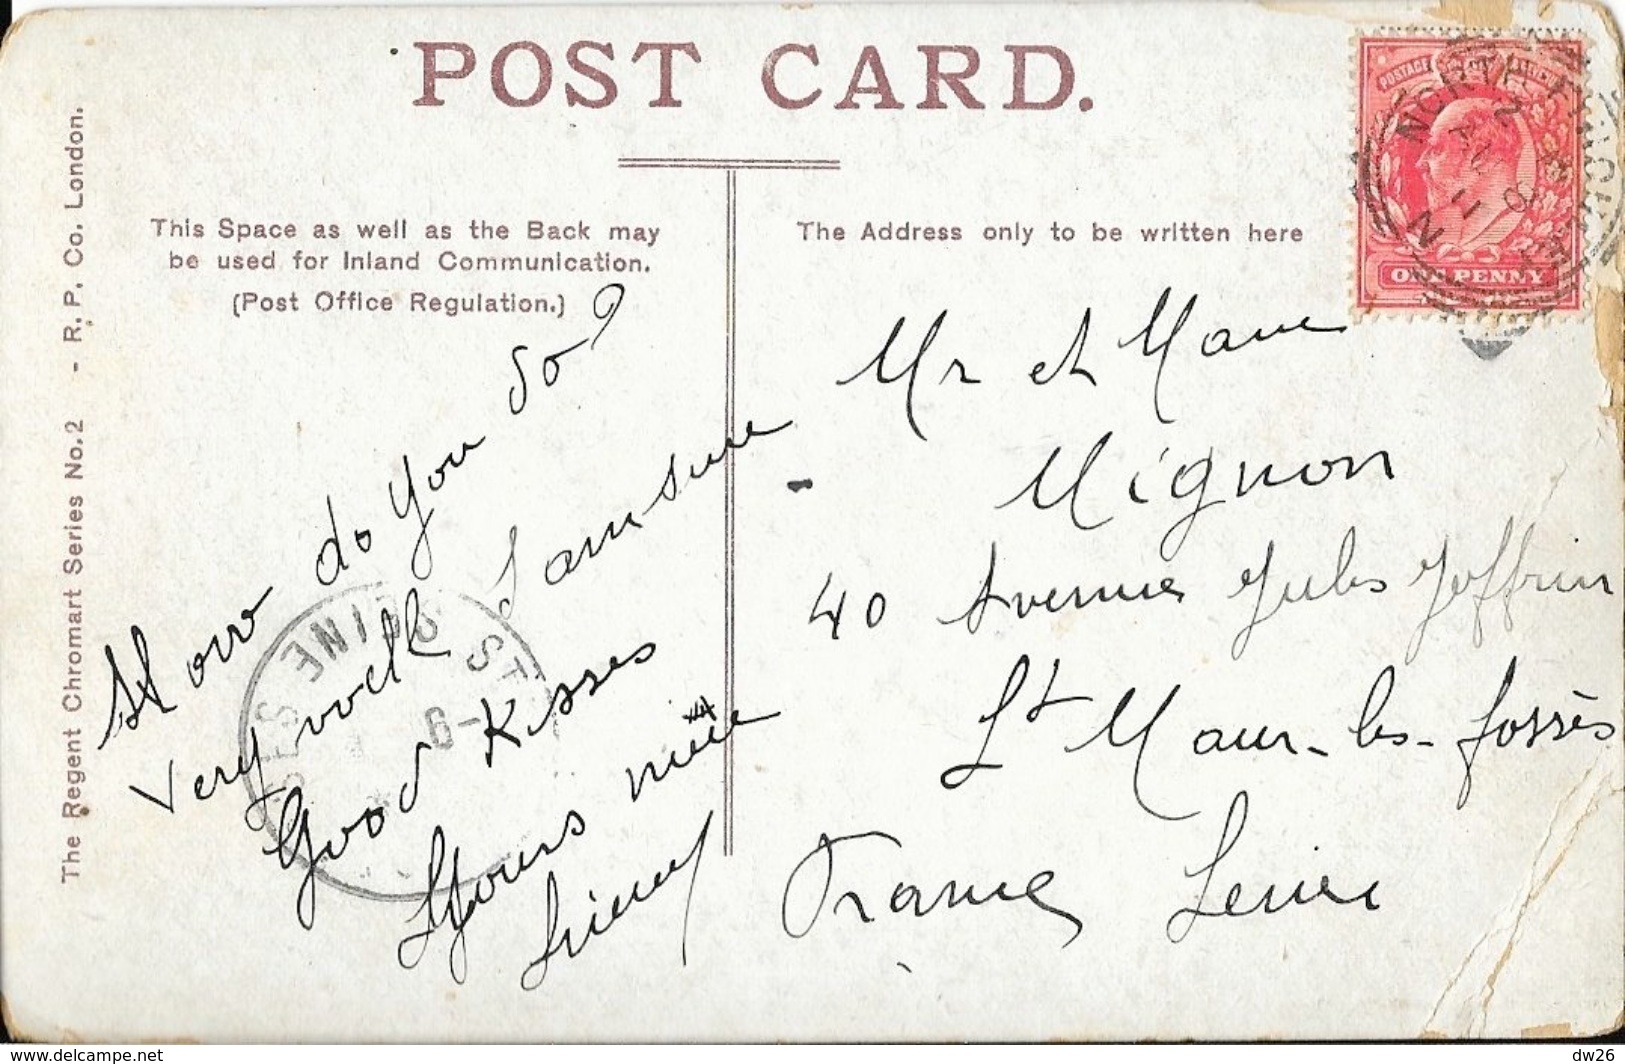 POST CARD.
This Space as well as the Back may
be used for Inland Communication.
(Post Office Regulation.)
The Address only to be written here
The Regent Chromart Series No. 2 - R. P. Co. London.
POSTAGE
ONE PENNY
NORTH FINCHLEY
N
How do you do?
Very well I am sure
Good Kisses
Yours
Mr et
Mignon
40 Avenue Jules Joffrin
St Maur-les-fossès
France Seine
SEINE
ST
www.delcampe.net
dw26